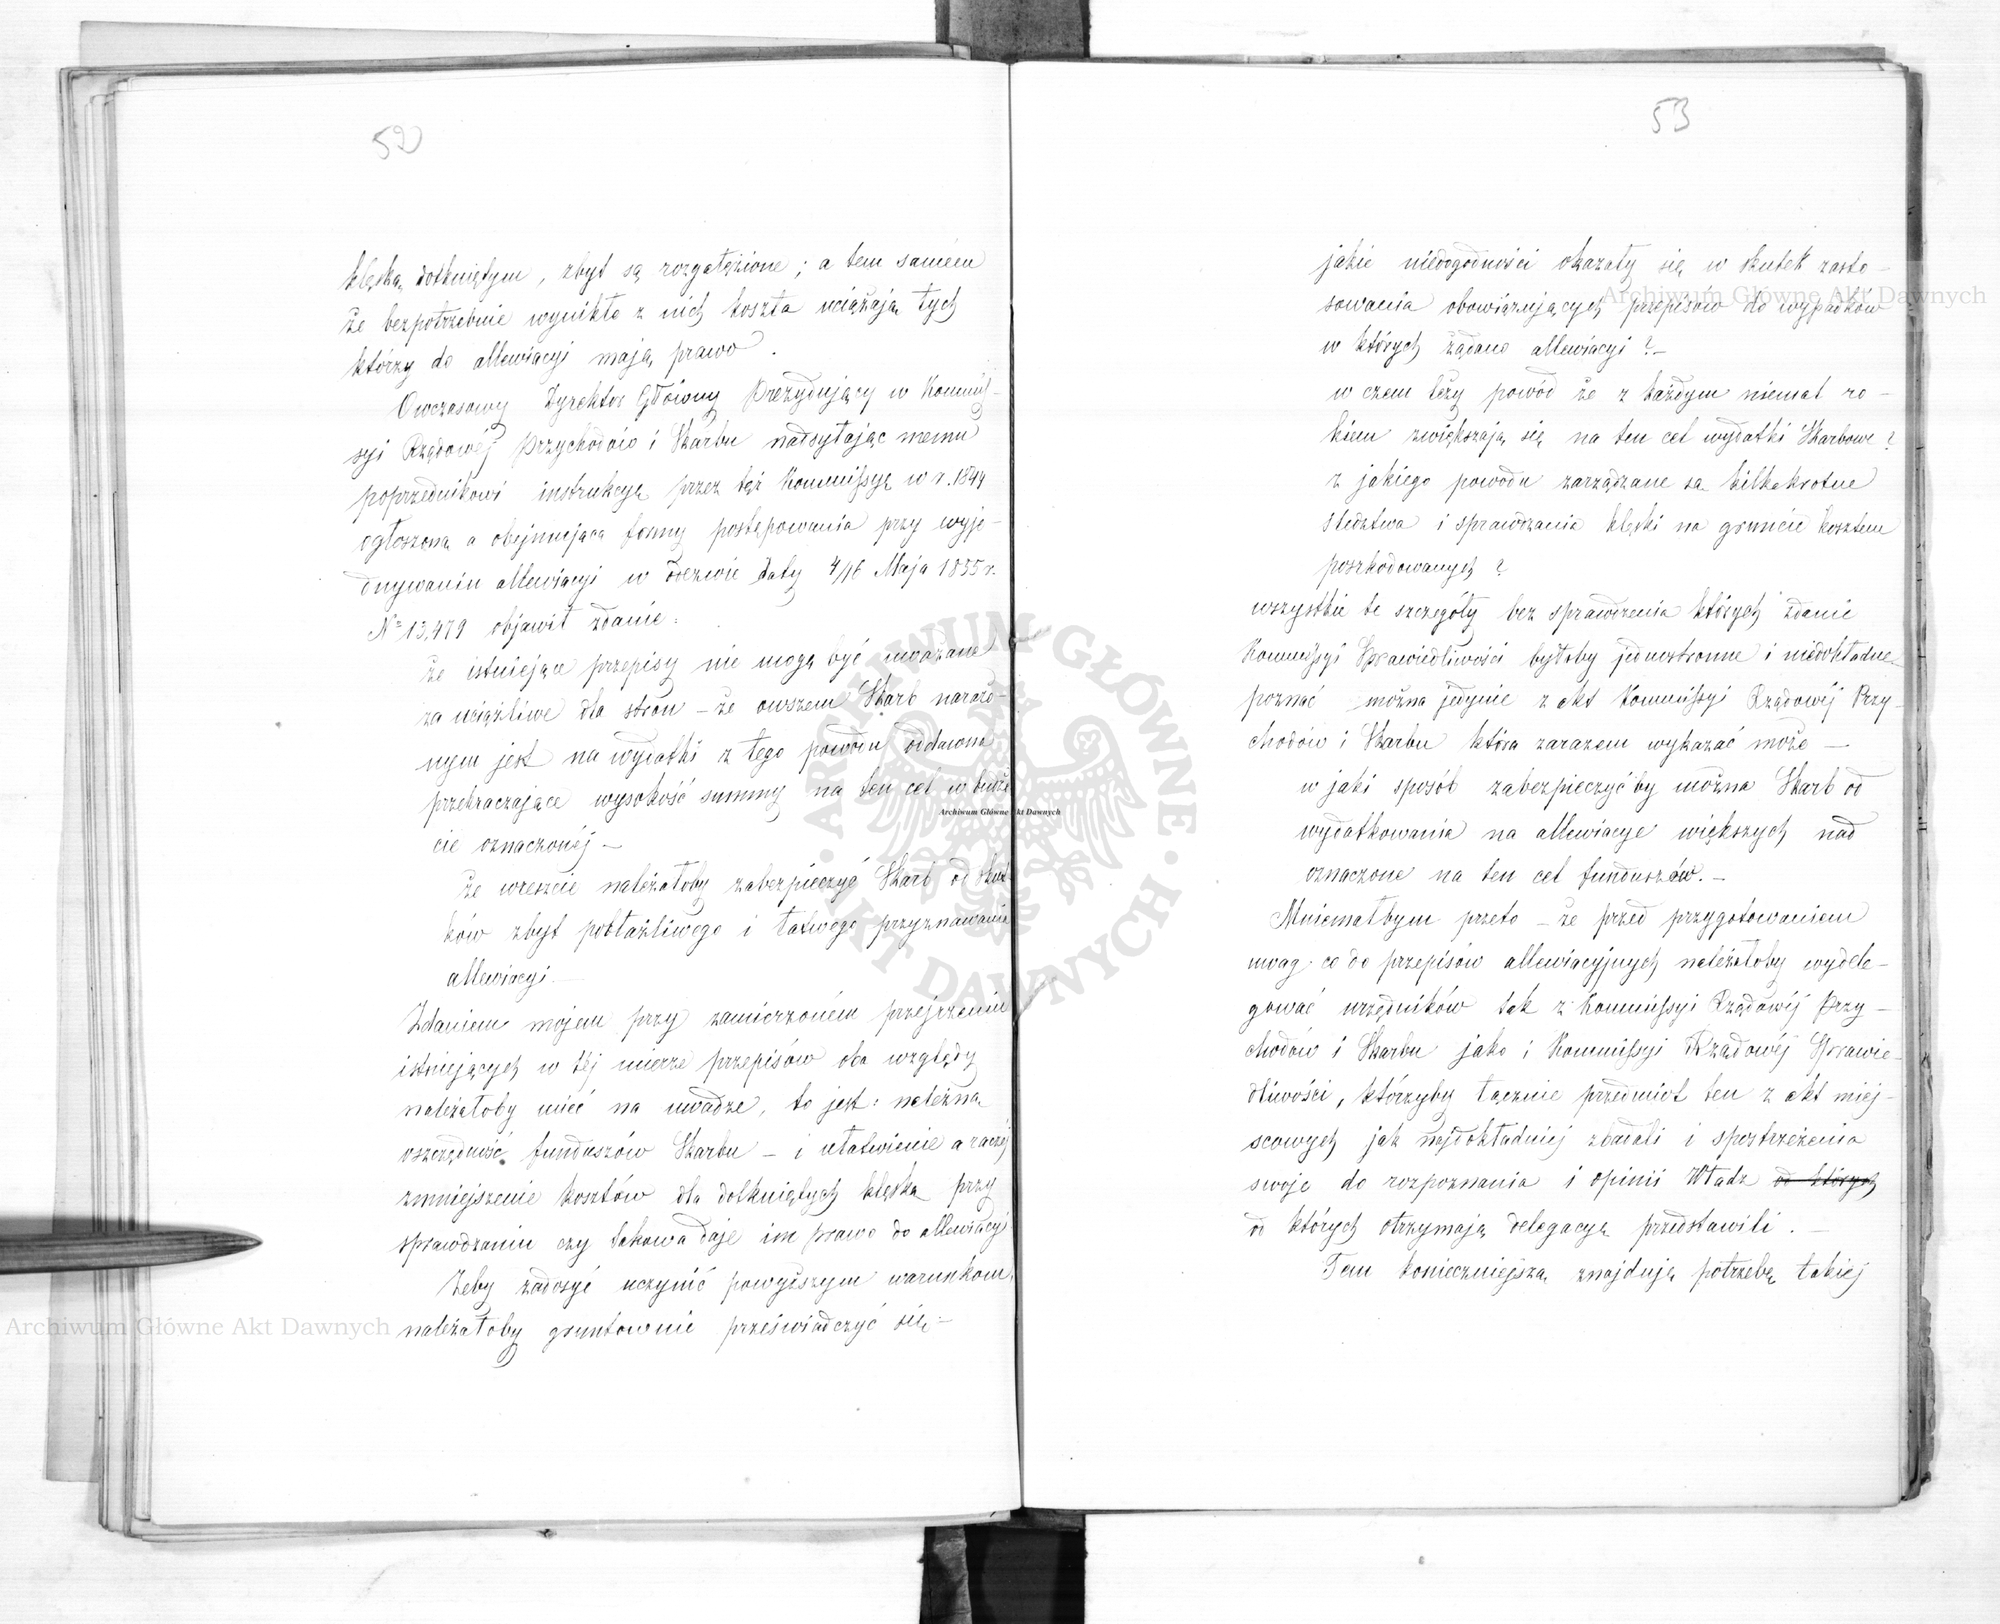 52
klęską dotkniętym, zbyt są rozgałężione; a tem samem
że bezpotrzebnie wynikłe z nich koszta uciążają tych
którzy do allewiacyi mają prawo.
Owczasowy Dyrektor Główny Prezydujący w Kommis-
syi Rządowéj Przychodów i Skarbu nadsyłając memu
poprzednikowi instrukcyą przez tęż Kommissyą w r. 1844
ogłoszoną a obejmującą formy postępowania przy wyje-
dnywaniu allewiacyi w odezwie daty 4/16 Maja 1855 r.
Nº 13,479 objawił zdanie:
że istniejące przepisy nie mogą być uważane
za uciążliwe dla stron – że owszem Skarb narażo-
nym jest na wydatki z tego powodu oddawna
przekraczające wysokość summy na ten cel w budże
cie oznaczonéj –
że wreszcie należałoby zabezpieczyć Skarb od skut-
ków zbyt pobłażliwego i łatwego przyznawania
allewiacyi –
Zdaniem mojem przy zamierzoném przejrzeniu
istniejących w téj mierze przepisów oba względy
należałoby mieć na uwadze, to jest: należną
oszczędność funduszów Skarbu – i ułatwienie a raczéj
zmniejszenie kosztów dla dotkniętych klęską przy
sprawdzaniu czy takowa daje im prawo do allewiacyi
Żeby zadosyć uczynić powyższym warunkom,
należałoby gruntownie przeświadczyć się –
53
jakie niedogodności okazały się w skutek zasto-
sowania obowiązujących przepisów do wypadków
w których żądano allewiacyi? –
w czem leży powód że z każdym niemal ro-
kiem zwiększają się na ten cel wydatki Skarbowe?
z jakiego powodu zarządzane są kilkakrotne
śledztwa i sprawdzania klęski na gruncie kosztem
poszkodowanych?
wszystkie te szczegóły bez sprawdzenia których zdanie
Kommissyi Sprawiedliwości byłoby jednostronne i niedokładne
poznać można jedynie z akt Kommissyi Rządowéj Przy-
chodów i Skarbu która zarazem wykazać może –
w jaki sposób zabezpieczyćby można Skarb od
wydatkowania na allewiacye większych nad
oznaczone na ten cel funduszów. –
Mniemałbym przeto – że przed przygotowaniem
uwag co do przepisów allewiacyjnych należałoby wydele-
gować urzędników tak z Kommissyi Rządowéj Przy-
chodów i Skarbu jako i Kommissyi Rządowéj Sprawie-
dliwości, którzyby łącznie przedmiot ten z akt miej-
scowych jak najdokładniej zbadali i spostrzeżenia
swoje do rozpoznania i opinii Władz od których
od których otrzymają delegacyą przedstawili. –
Tem konieczniejszą znajduję potrzebę takiej
Archiwum Główne Akt Dawnych
Archiwum Główne Akt Dawnych
Archiwum Główne Akt Dawnych
ARCHIWUM GŁÓWNE AKT DAWNYCH